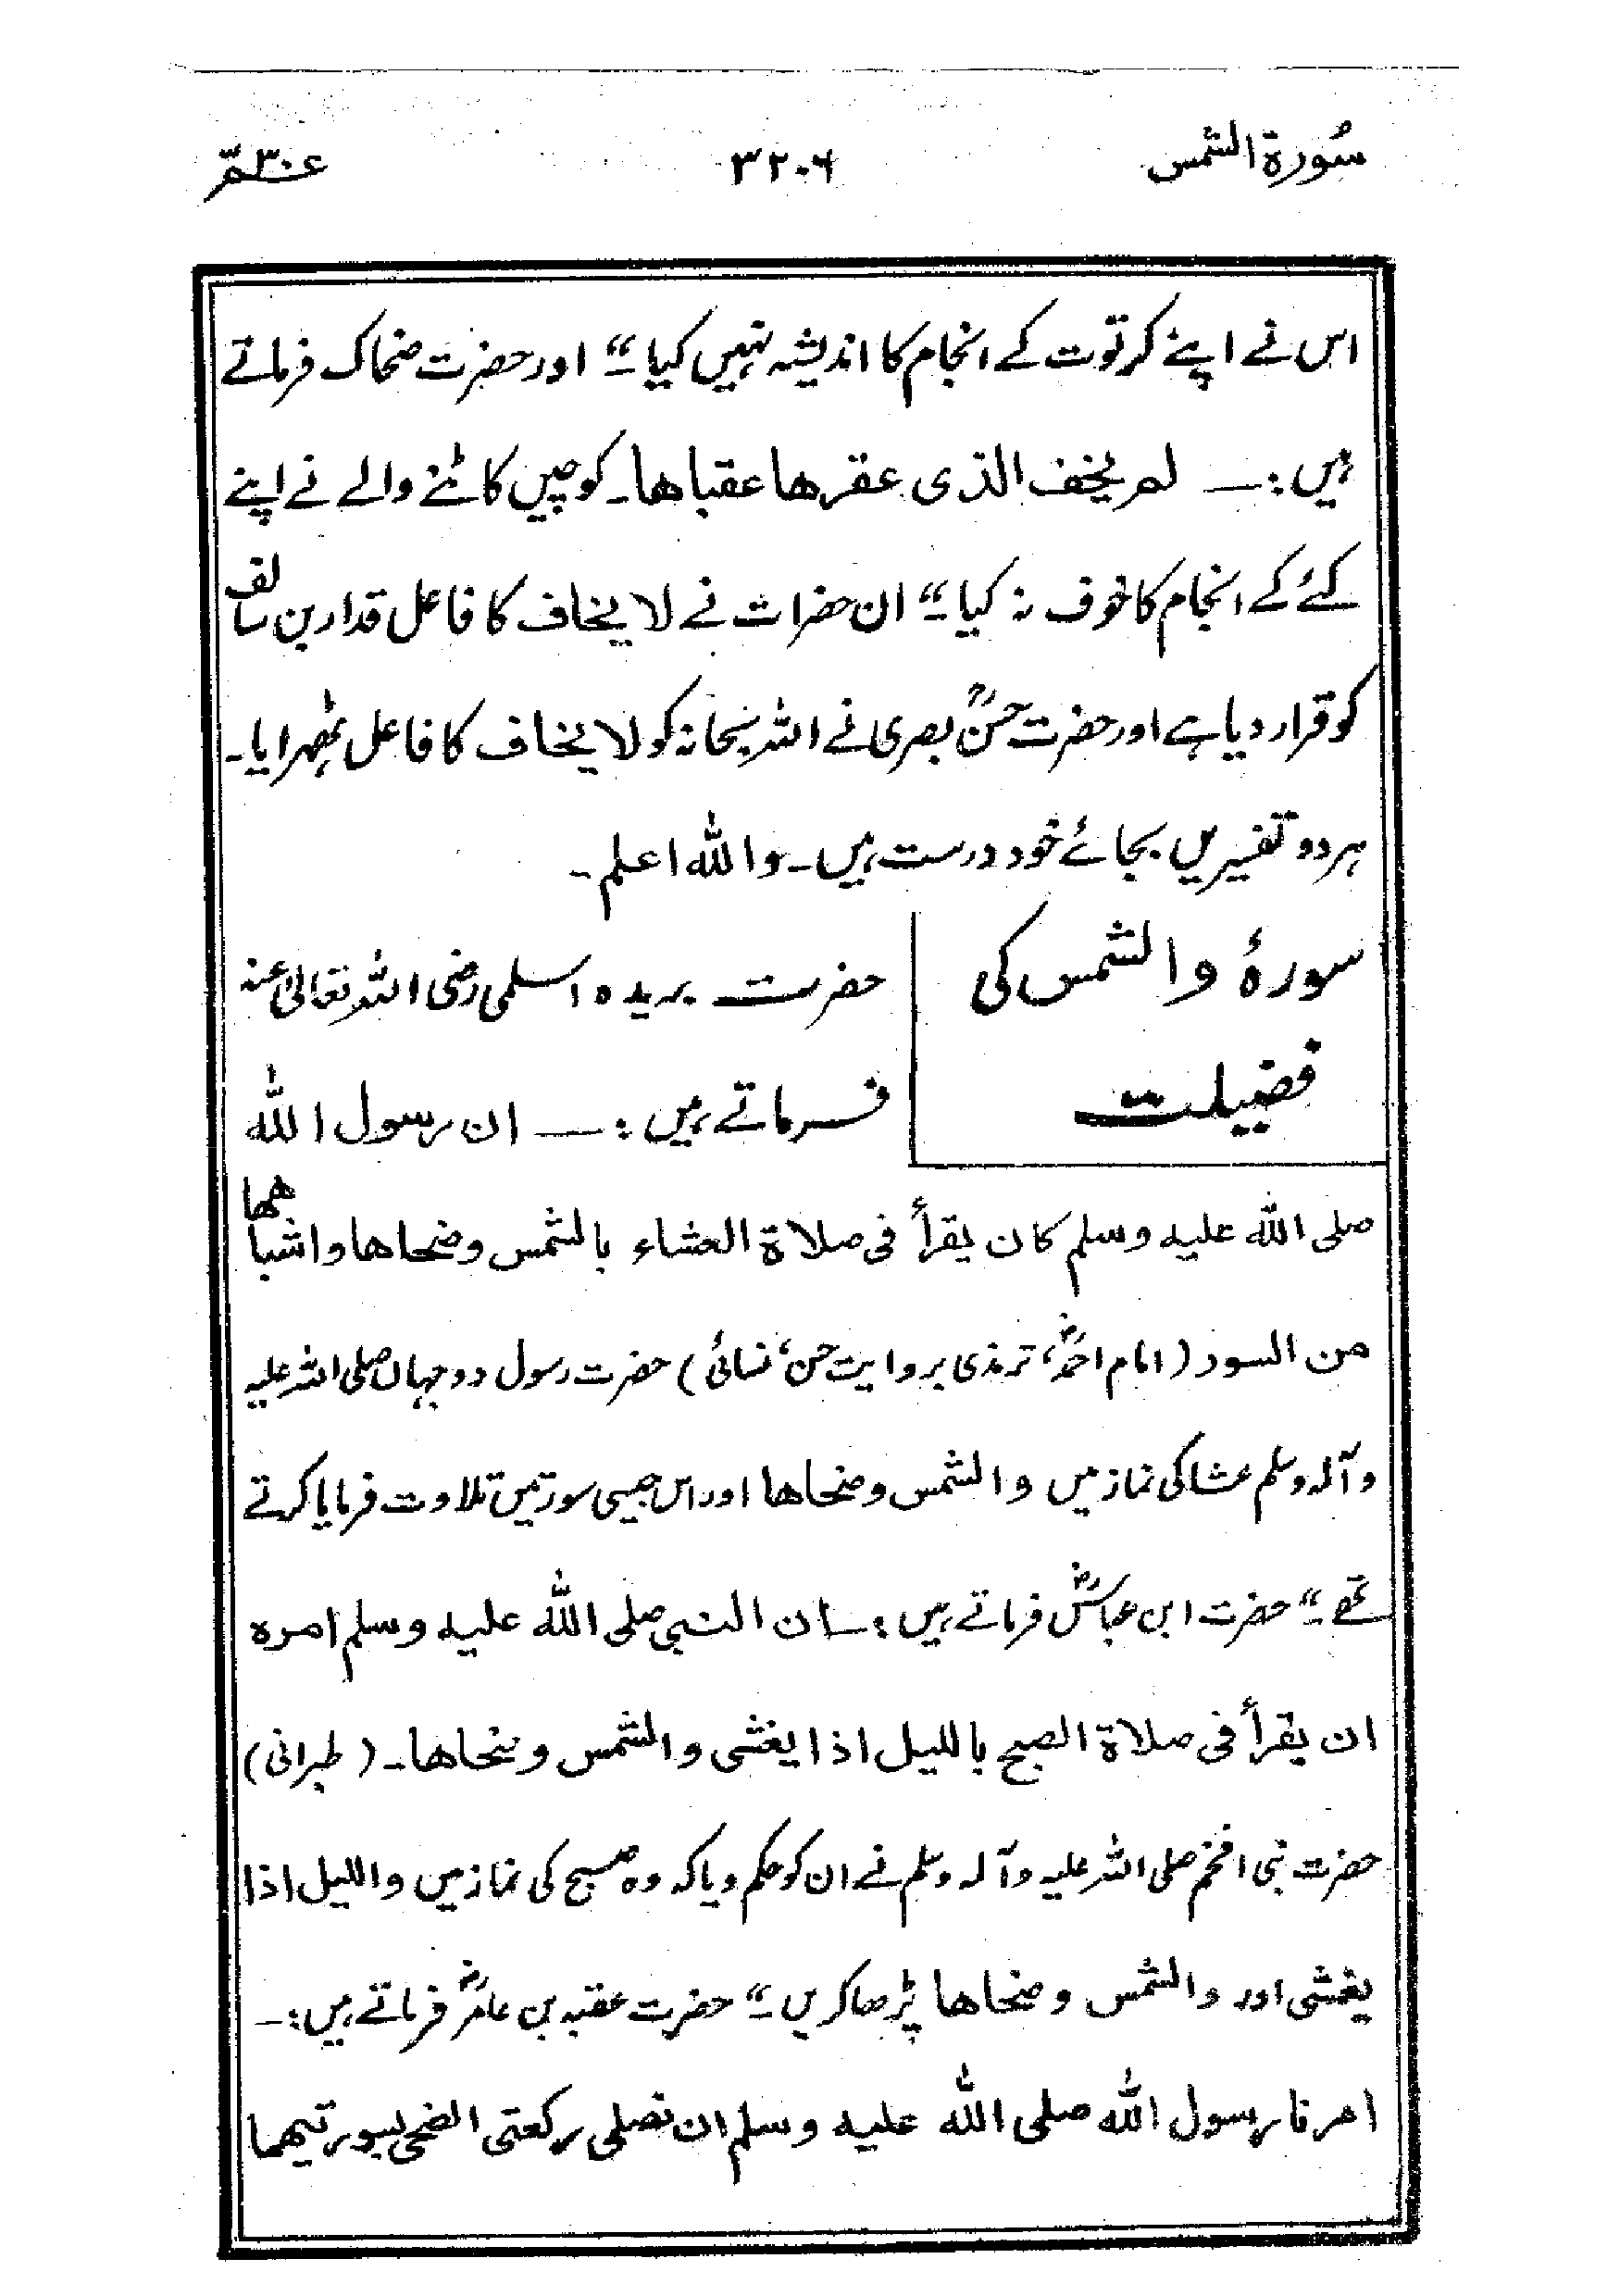 سُورة الشمس
۳۲۰۶
عم ۳۰
اس نے اپنے کرتوت کے انجام کا اندیشہ نہیں کیا۔“ اور حضرت ضحاک فرماتے
ہیں:— لم یخف الذی عقرها عقباها۔ کوچیں کاٹنے والے نے اپنے
کئے کے انجام کا خوف نہ کیا۔“ ان حضرات نے لا یخاف کا فاعل قدار بن سالف
کو قرار دیا ہے اور حضرت حسنؒ بصری نے اللہ سبحانہ کو لا یخاف کا فاعل ٹھہرایا۔
ہر دو تفسیریں بجائے خود درست ہیں۔ واللہ اعلم۔
سورۂ والشمس کی
فضیلت
حضرت بریدہ اسلمی رضی اللہ تعالیٰ عنہ
فرماتے ہیں:— ان رسول اللہ
صلی اللہ علیہ وسلم کان یقرأ فی صلاة العشاء بالشمس وضحاها واشباهها
من السور (امام احمدؒ، ترمذی بروایت حسن، نسائی) حضرت رسول دوجہاں صلی اللہ علیہ
وآلہ وسلم عشا کی نماز میں والشمس وضحاها اور اس جیسی سورتیں تلاوت فرمایا کرتے
تھے۔“ حضرت ابن عباسؓ فرماتے ہیں:— ان النبی صلی اللہ علیہ وسلم امرہ
ان یقرأ فی صلاة الصبح باللیل اذا یغشی والشمس وضحاها۔ (طبرانی)
حضرت نبی افخم صلی اللہ علیہ وآلہ وسلم نے ان کو حکم دیا کہ وہ صبح کی نماز میں واللیل اذا
یغشی اور والشمس وضحاها پڑھا کریں۔“ حضرت عقبہ بن عامرؓ فرماتے ہیں:—
امرنا رسول اللہ صلی اللہ علیہ وسلم ان نصلی رکعتی الضحی بسورتیهما